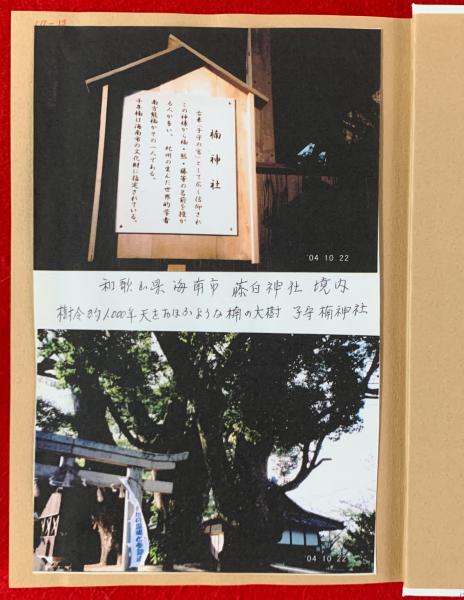 17-13
楠神社
古来「子守の宮」として広く信仰され
この神様から楠・熊・藤等の名前を授か
る人が多い。 紀州の生んだ世界的学者
南方熊楠がその一人である。
千年楠は海南市の文化財に指定されている。
'04 10 22
和歌山県海南市 藤白神社 境内
樹令約1,000年天をおほふような楠の大樹 子守楠神社
'04 10 22